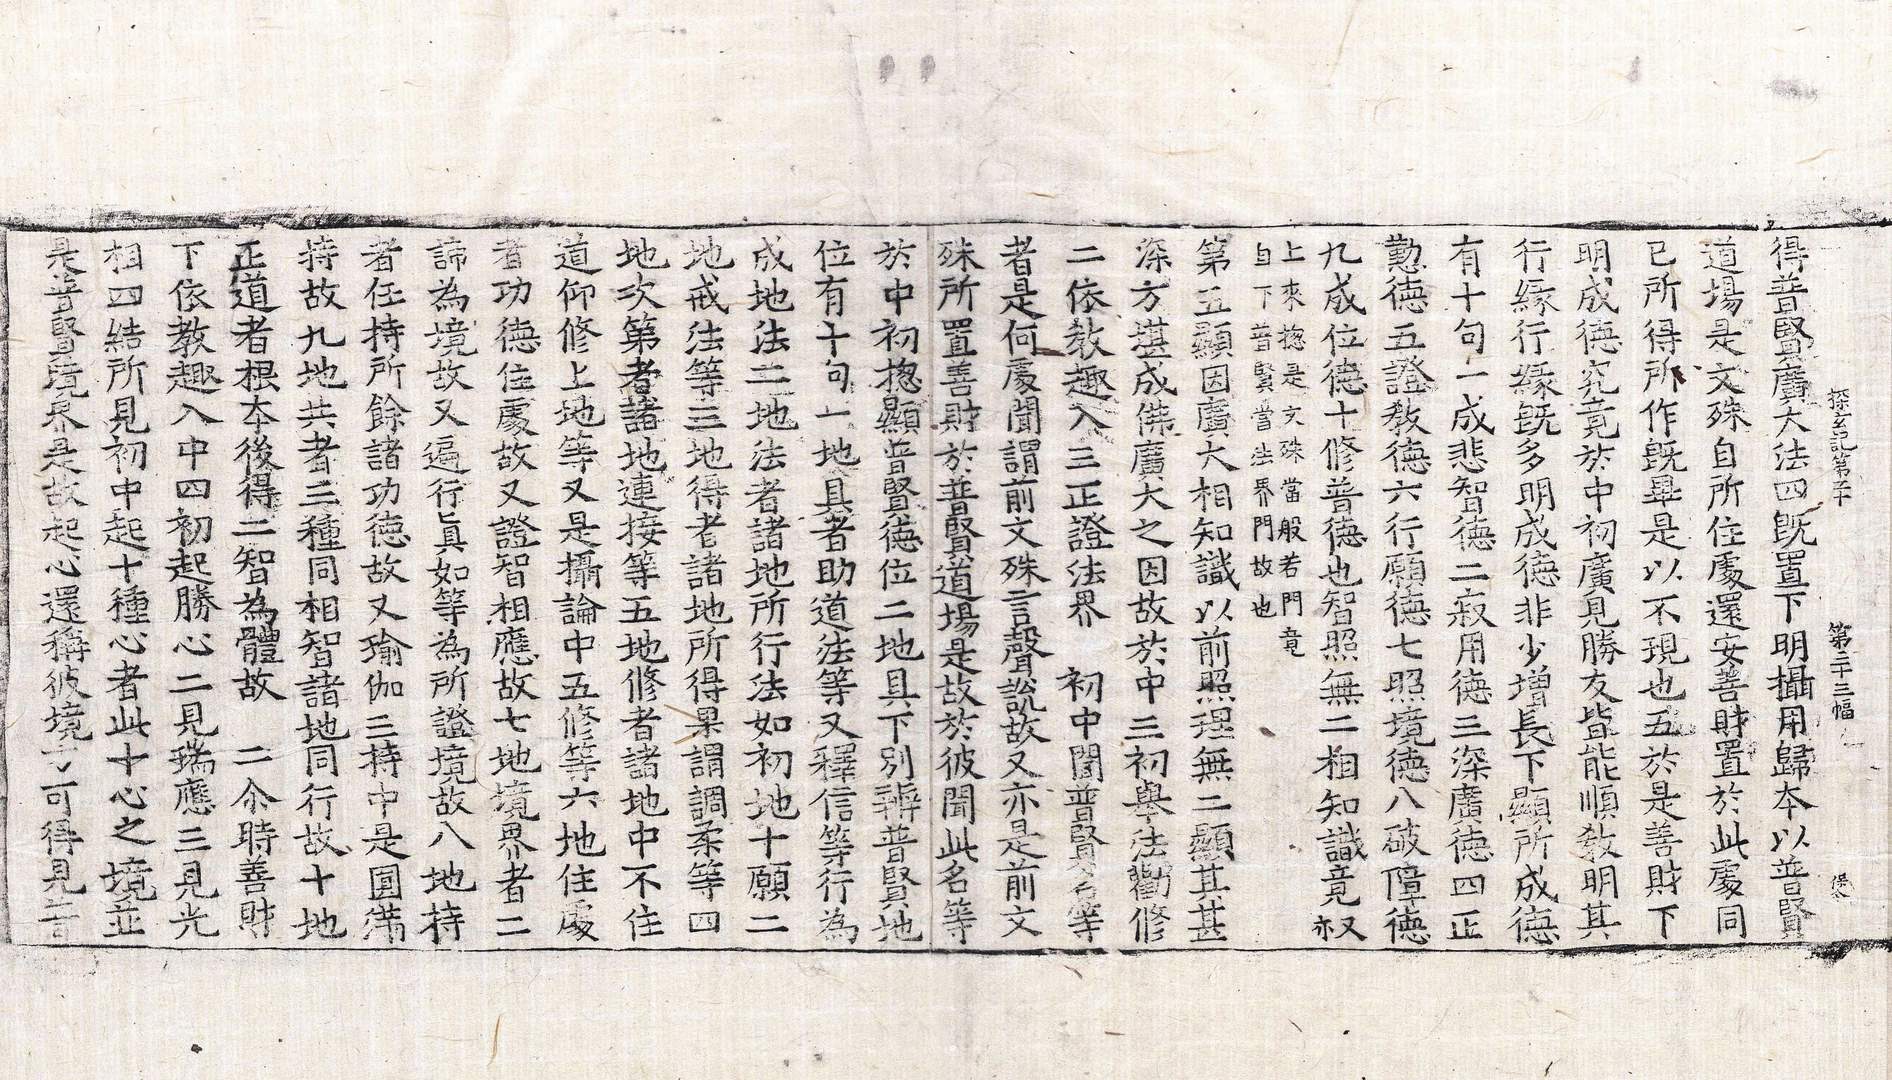 探玄記第二十 第三十三幅
得普賢廣大法四旣置下明攝用歸本以普賢
道場是文殊自所住處還安善財置於此處同
已所得所作旣畢是以不現也五於是善財下
明成德究竟於中初廣見勝友皆能順教明其
行緣行緣旣多明成德非少增長下顯所成德
有十句一成悲智德二寂用德三深廣德四正
勤德五證教德六行願德七照境德八破障德
九成位德十修普德也智照無二相知識竟
上來揔是文殊當般若門竟
自下普賢當法界門故也
第五顯因廣大相知識以前照理無二顯其甚
深方堪成佛廣大之因故於中三初舉法勸修
二依教趣入三正證法界 初中聞普賢名等
者是何處聞謂前文殊言聲說故又亦是前文
殊所置善財於普賢道場是故於彼聞此名等
於中初揔顯普賢德位二地具下別辨普賢地
位有十句一地具者助道法等又釋信等行為
成地法二地法者諸地所行法如初地十願二
地戒法等三地得者諸地所得果謂調柔等四
地次第者諸地連接等五地修者諸地中不住
道仰修上地等又是攝論中五修等六地住處
者功德住處故又證智相應故七地境界者二
諦為境故又遍行眞如等為所證境故八地持
者任持所餘諸功德故又瑜伽三持中是圓滿
持故九地共者三種同相智諸地同行故十地
正道者根本後得二智為體故 二尒時善財
下依教趣入中四初起勝心二見瑞應三見光
相四結所見初中起十種心者此十心之境並
是普賢境界是故起心還稱彼境方可得見言